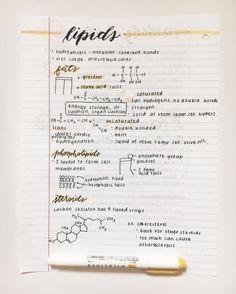 lipids
• hydrophobic - nonpolar covalent bonds
• not large macromolecules
fats
glycerol
fatty acid tails
saturated
full hydrogen, no double bonds
straight
solid at room temp (ex: butter)
energy storage, in-
sulation, organ cushion
unsaturated
double bonded
bent
trans
hydrogenation
phospholipids
• 2 layers to form cell
membranes
phosphate group
glycerol
2 fatty
acid tails
hydrophilic head
hydrophobic tails
steroids
carbon skeleton has 4 fused rings
ex: cholesterol
• base for other steroids
• too much can cause
atherosclerosis